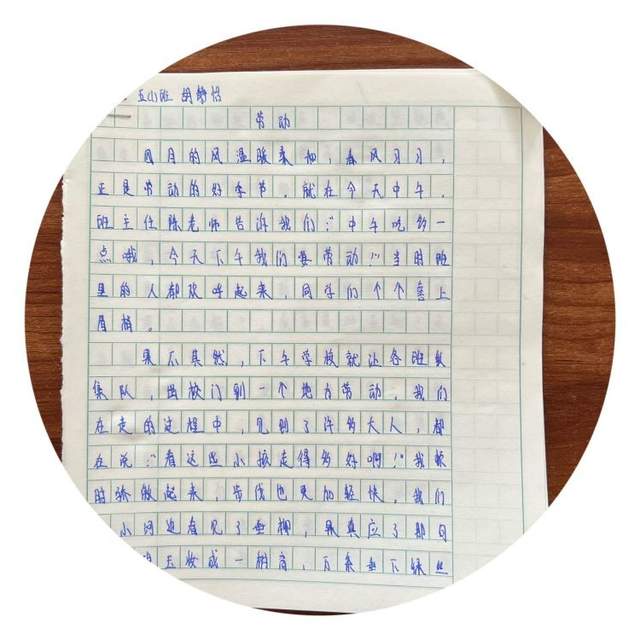 五(1)班 胡静怡
劳动
四月的风温暖柔和，春风习习，
正是劳动的好季节。就在今天中午，
班主任陈老师告诉我们：“中午吃多一
点哦，今天下午我们要劳动！”当时班
里的人都欢呼起来，同学们个个喜上
眉梢。
果不其然，下午学校就让各班集
队，出校门到一个地方劳动，我们
在走的过程中，见到了许多大人，都
在说：“看这些小孩走得多好啊！”我顿
时骄傲起来，步伐也更加轻快，我们
小河边看见了垂柳，果真应了那句
玉妆成一树高，万条垂下绿丝